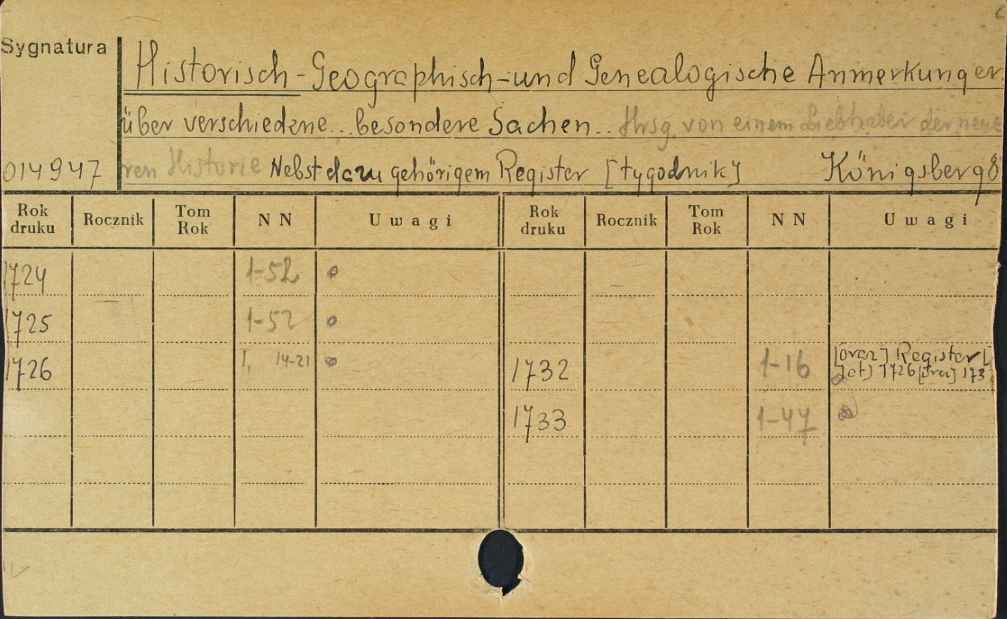 Sygnatura
Historisch-Geographisch-und Genealogische Anmerkungen
über verschiedene... besondere Sachen.. Hrsg. von einem Liebhaber der neue
014947 ren Historie Nebst dazu gehörigem Register [tygodnik] Königsberg
Rok druku Rocznik Tom Rok NN Uwagi Rok druku Rocznik Tom Rok NN Uwagi
1724 1-52
1725 1-52
1726 1, 14-21 1732 1-16 [oraz] Register [
1726 [oraz] 173
1733 1-47